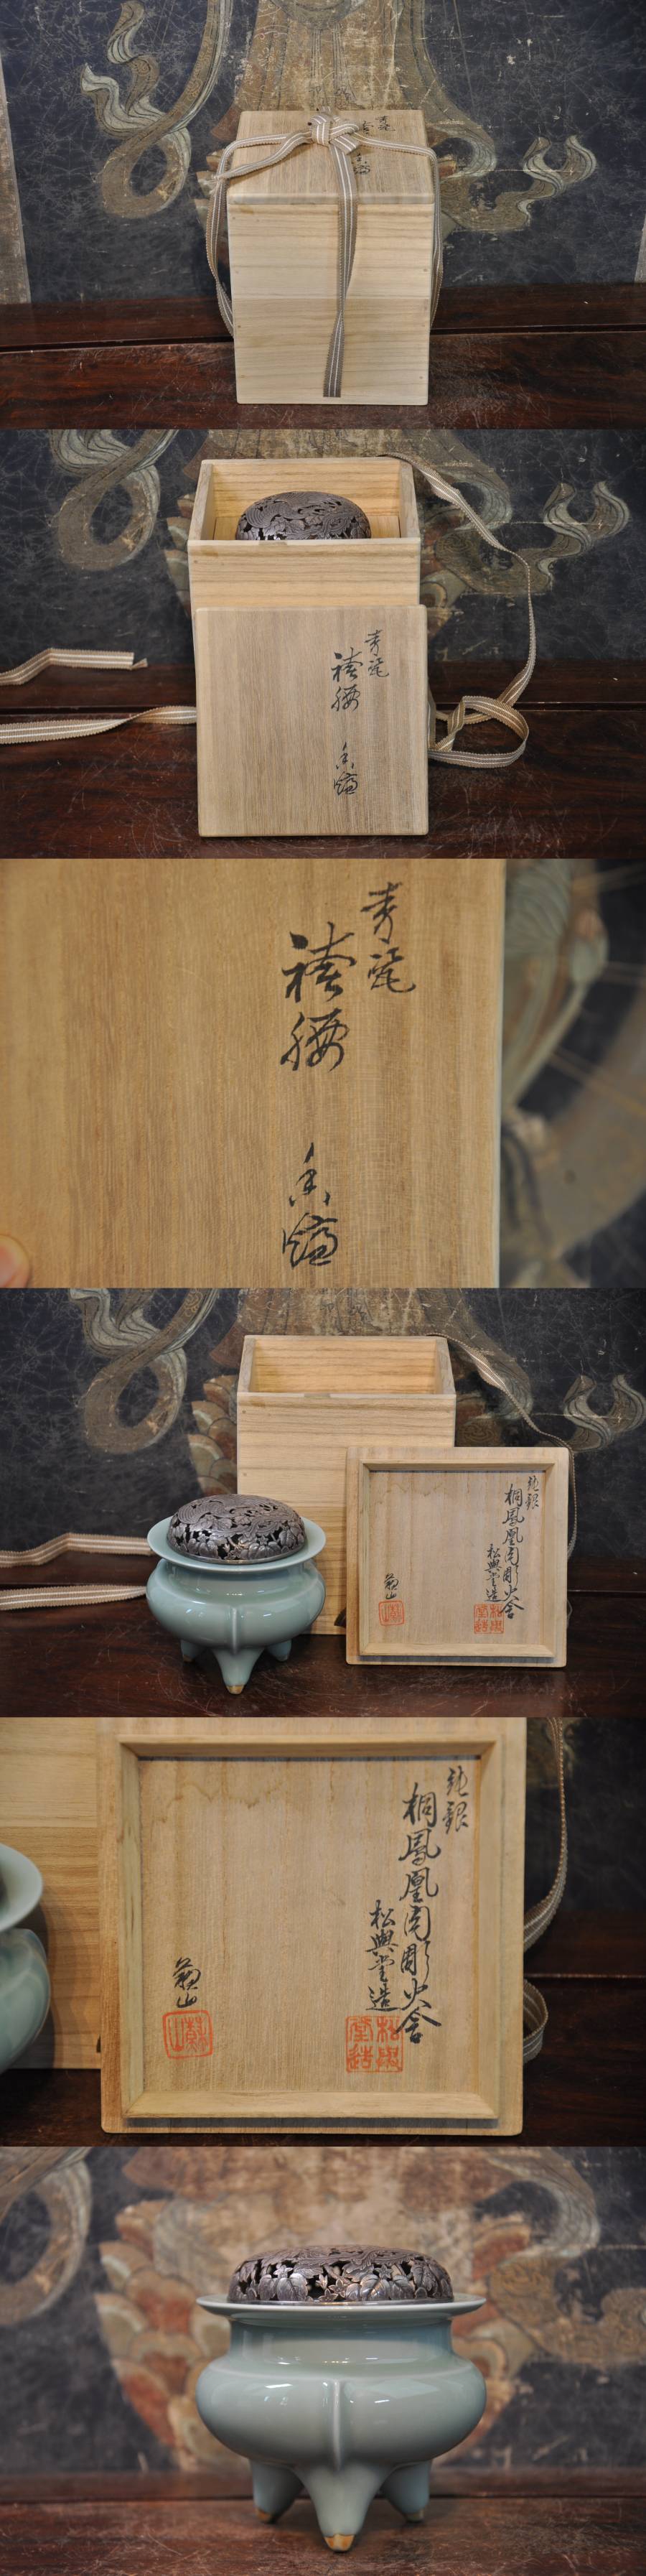 青瓷
袴腰
香爐
青瓷
袴腰
香爐
青瓷
袴腰
香爐
純銀
桐鳳凰図彫火舎
松興堂造
純銀
桐鳳凰図彫火舎
松興堂造